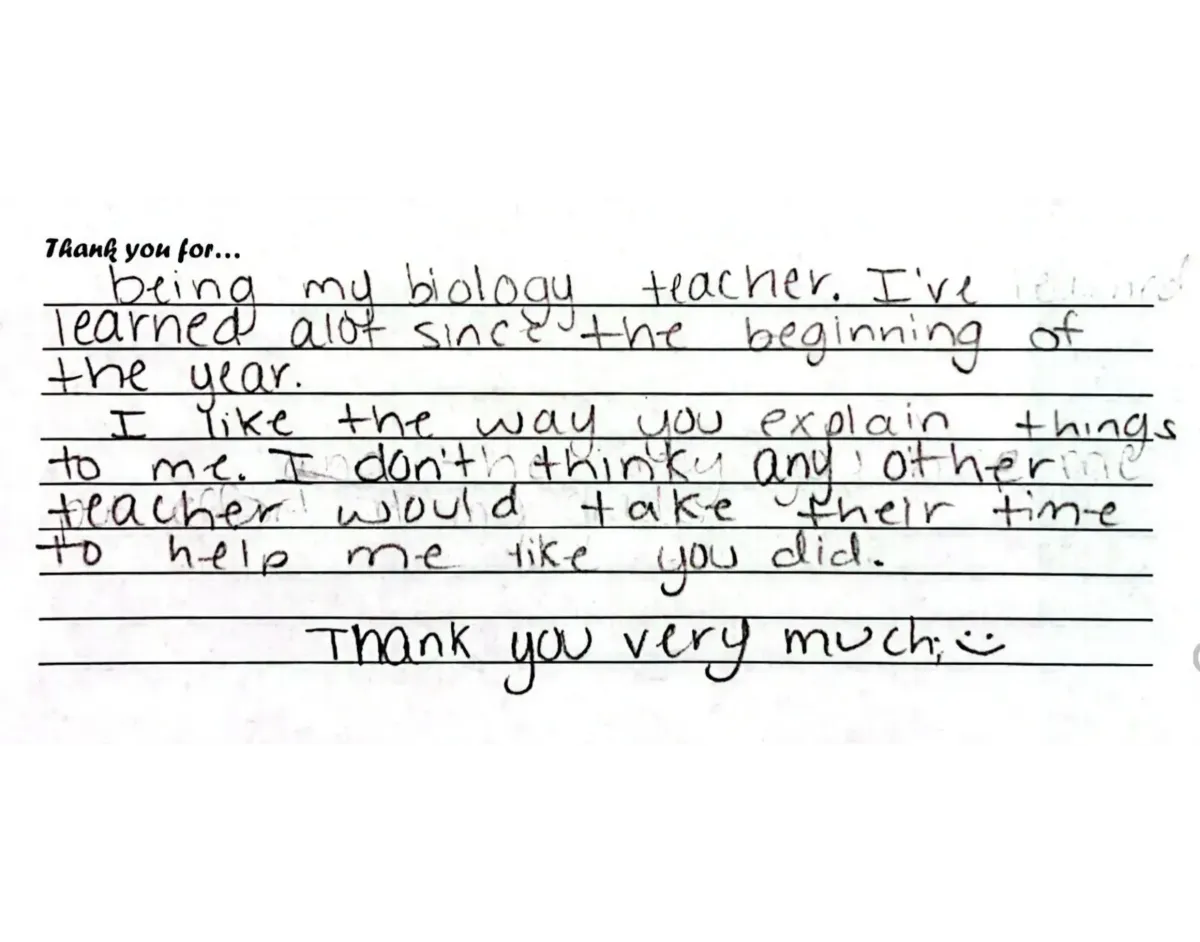 Thank you for...
being my biology teacher. I've
learned alot since the beginning of
the year.
I like the way you explain things
to me. I don't think any other
teacher would take their time
to help me like you did.
Thank you very much; :)